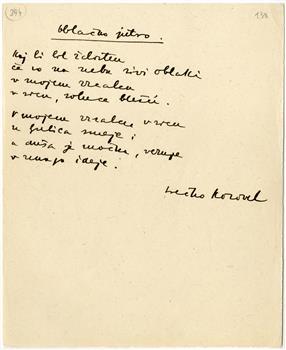 294
138
Oblačno jutro.
Kaj bi bil žalosten
če so na nebu sivi oblaki
v mojem zrcalu
v srcu, solnce blešči.
V mojem zrcalu v srcu
se smeje
a duša je močna, veruje
v svojo idejo.
Srečko Kosovel